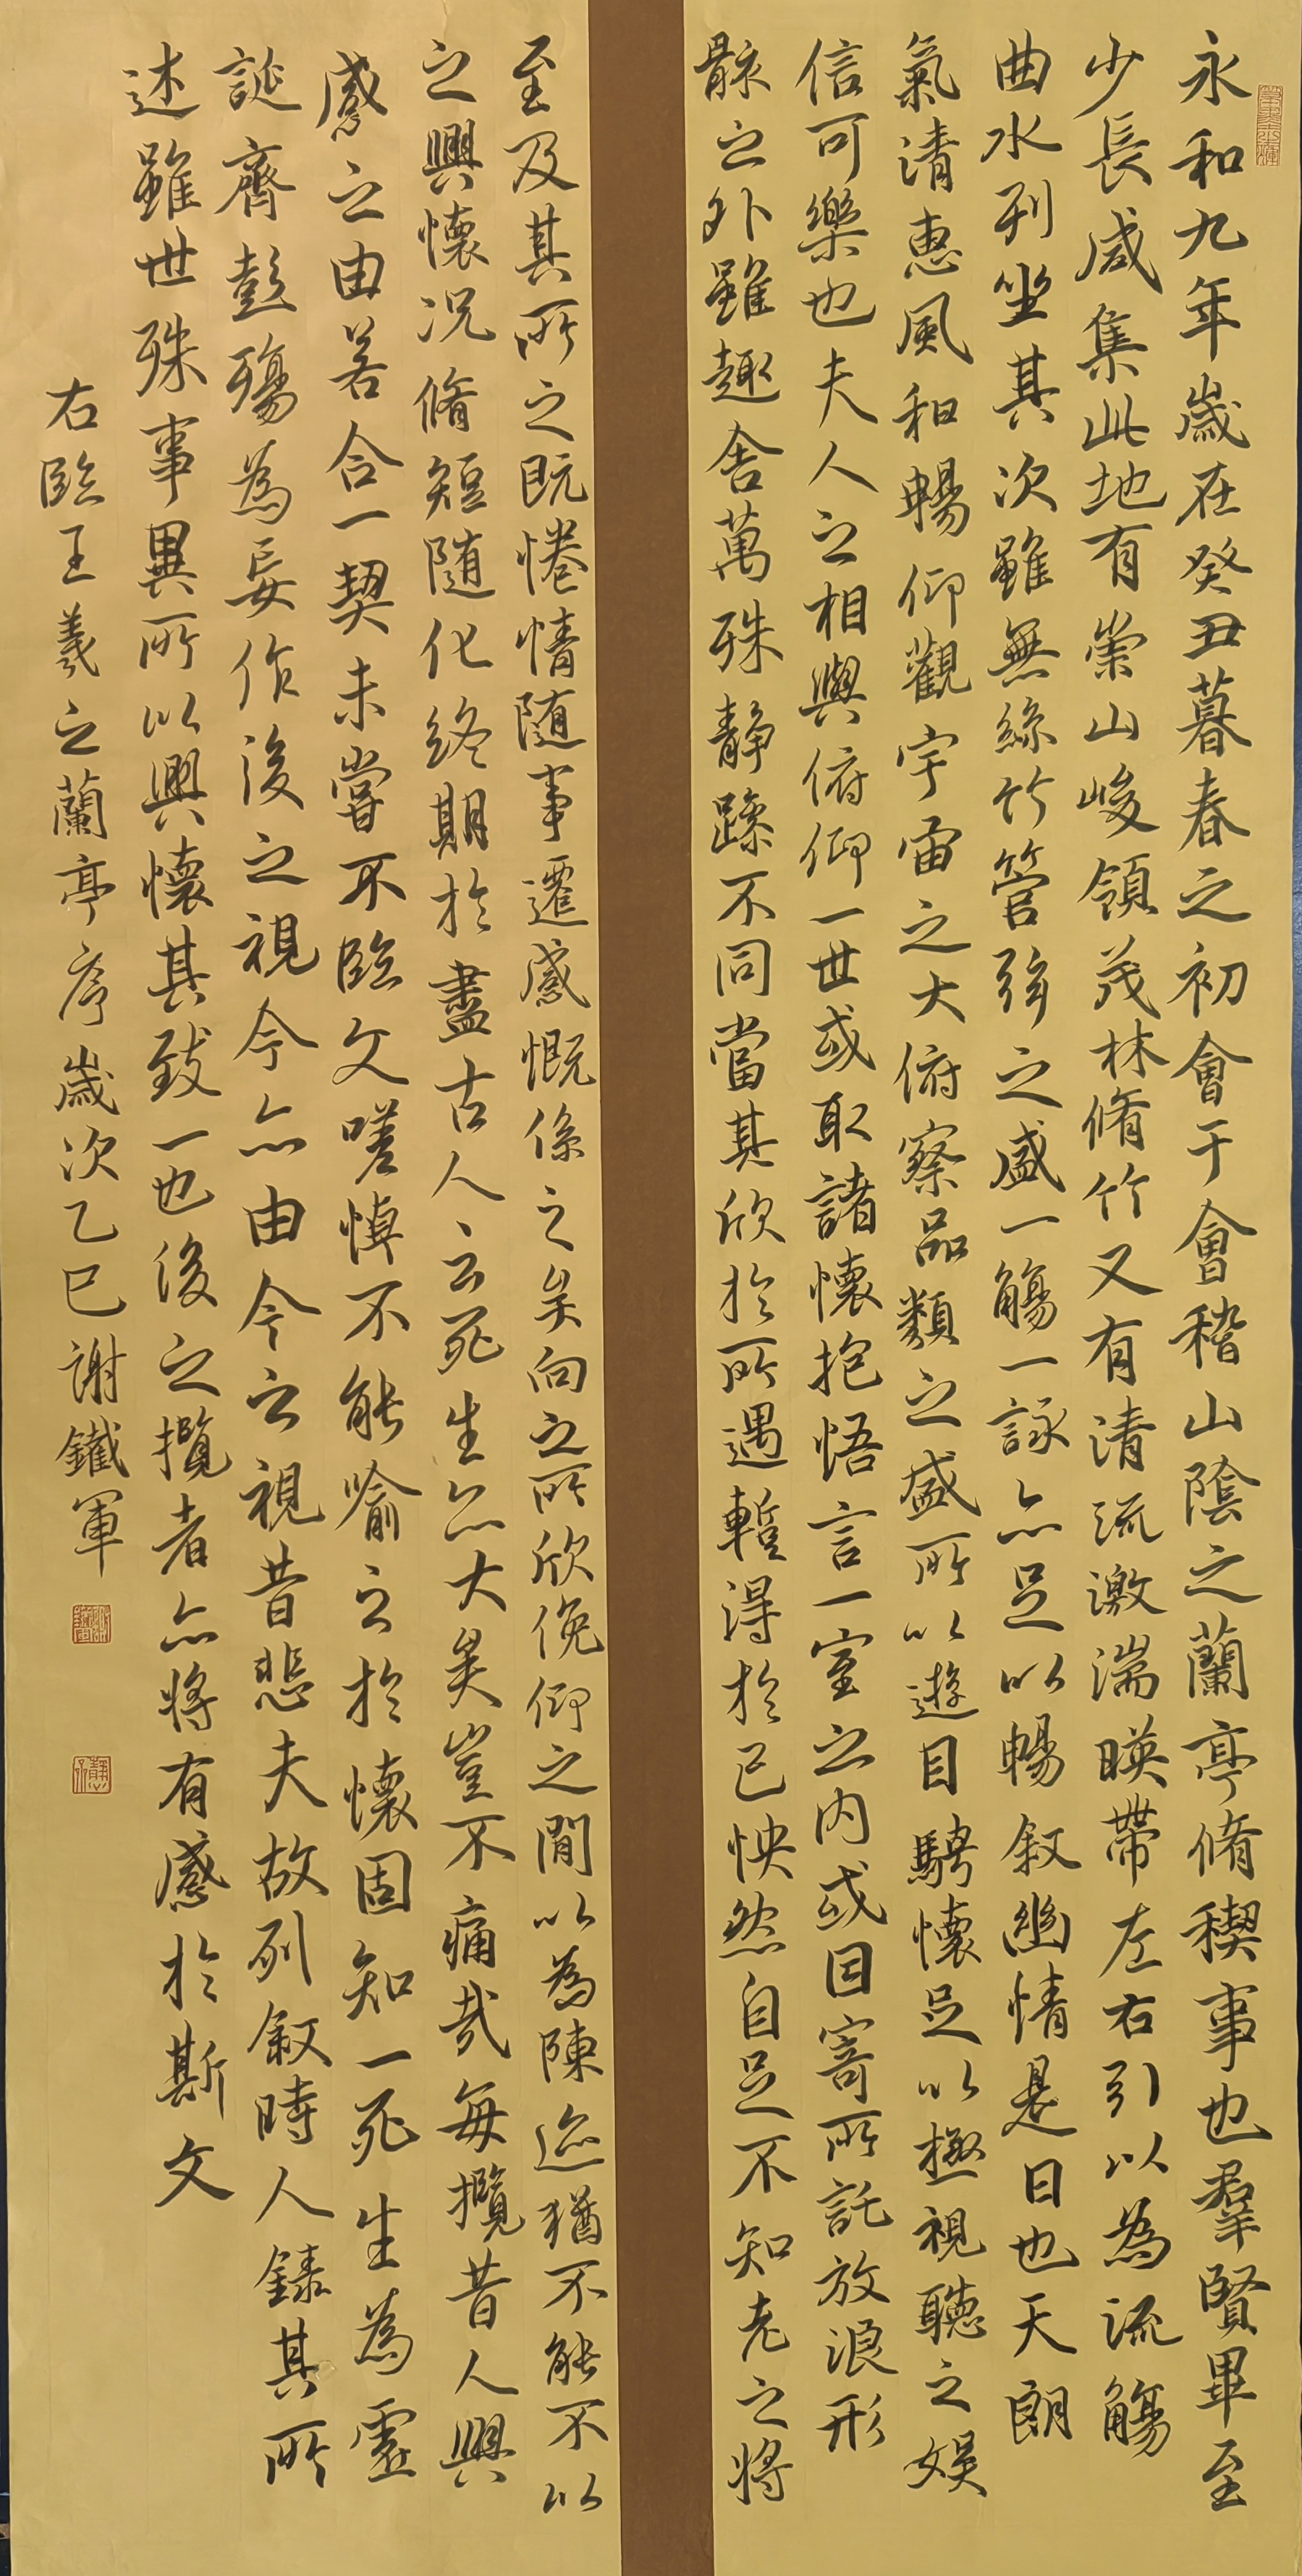 永和九年歲在癸丑暮春之初會于會稽山陰之蘭亭脩稧事也羣賢畢至
少長咸集此地有崇山峻領茂林脩竹又有清流激湍暎帶左右引以為流觴
曲水列坐其次雖無絲竹管弦之盛一觴一詠亦足以暢叙幽情是日也天朗
氣清惠風和暢仰觀宇宙之大俯察品類之盛所以遊目騁懷足以極視聽之娛
信可樂也夫人之相與俯仰一世或取諸懷抱悟言一室之內或因寄所託放浪形
骸之外雖趣舍萬殊静躁不同當其欣於所遇暫得於己怏然自足不知老之將
至及其所之既惓情隨事遷感慨係之矣向之所欣俛仰之閒以為陳迹猶不能不以
之興懷况脩短隨化終期於盡古人云死生亦大矣豈不痛哉每攬昔人興
感之由若合一契未嘗不臨文嗟悼不能喻之於懷固知一死生為虛
誕齊彭殤為妄作後之視今亦由今之視昔悲夫故列叙時人錄其所
述雖世殊事異所以興懷其致一也後之攬者亦將有感於斯文
右臨王羲之蘭亭序歲次乙巳謝鐵軍